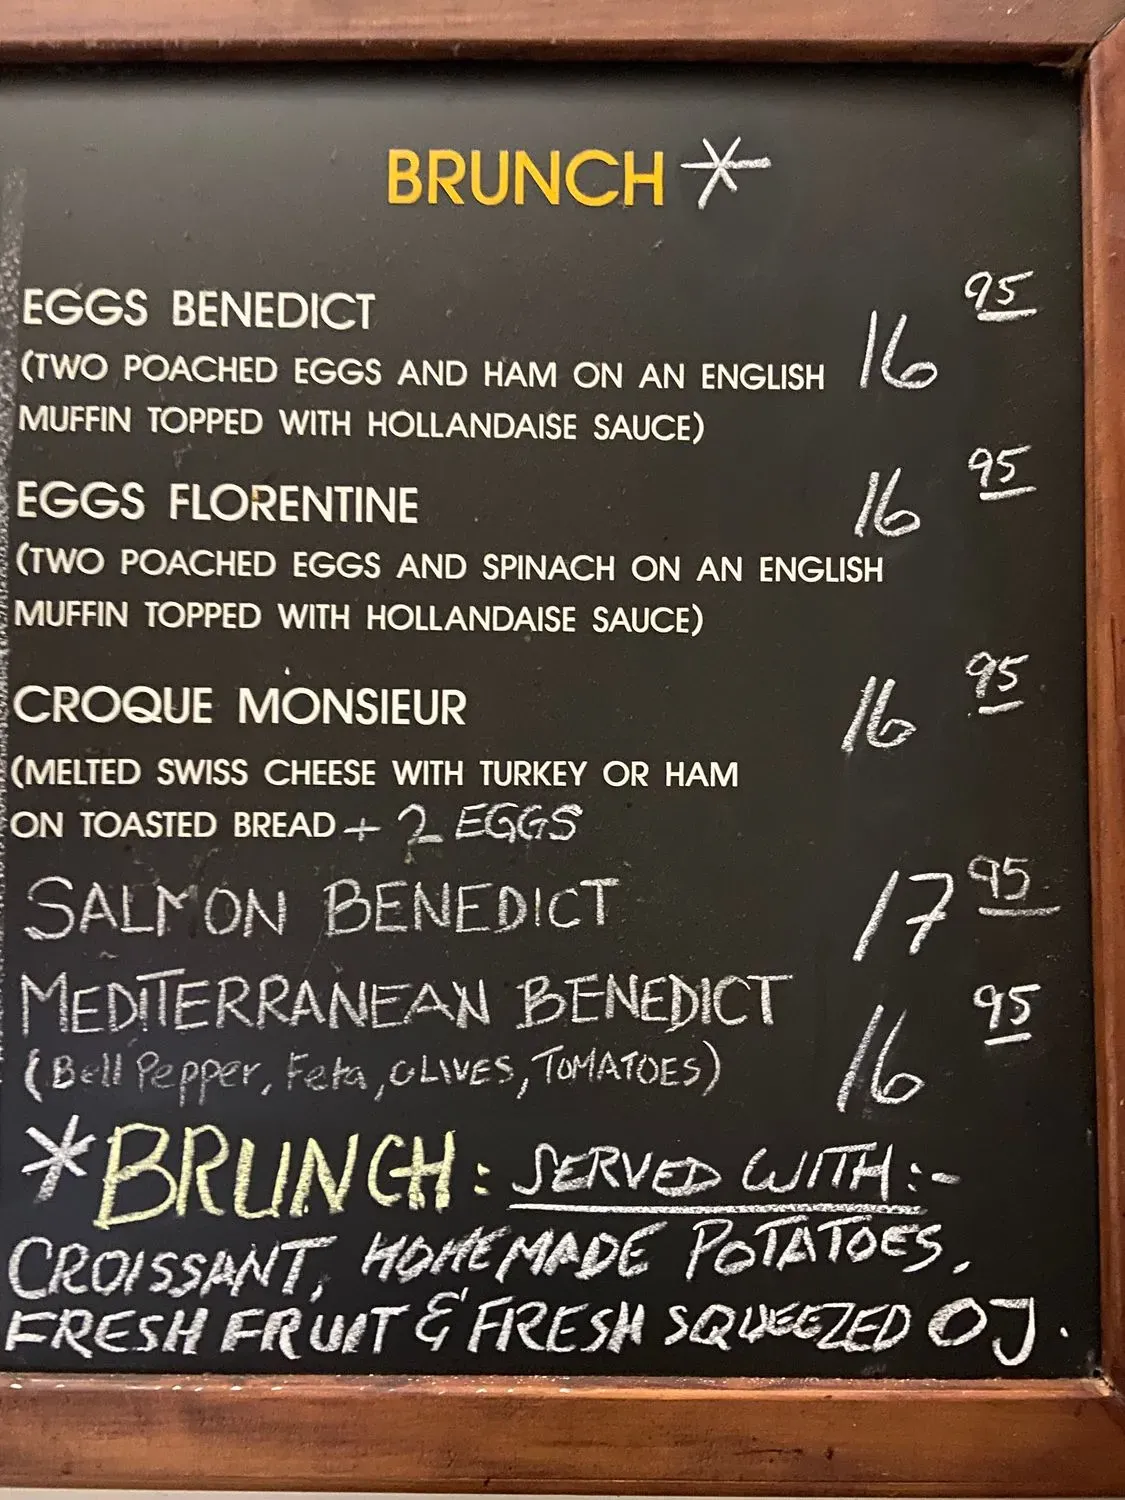 BRUNCH *
EGGS BENEDICT 16 95
(TWO POACHED EGGS AND HAM ON AN ENGLISH
MUFFIN TOPPED WITH HOLLANDAISE SAUCE)
EGGS FLORENTINE 16 95
(TWO POACHED EGGS AND SPINACH ON AN ENGLISH
MUFFIN TOPPED WITH HOLLANDAISE SAUCE)
CROQUE MONSIEUR 16 95
(MELTED SWISS CHEESE WITH TURKEY OR HAM
ON TOASTED BREAD + 2 EGGS
SALMON BENEDICT 17 95
MEDITERRANEAN BENEDICT 16 95
(Bell Pepper, Feta, OLIVES, TOMATOES)
*BRUNCH: SERVED WITH:-
CROISSANT, HOMEMADE POTATOES,
FRESH FRUIT & FRESH SQUEEZED OJ.